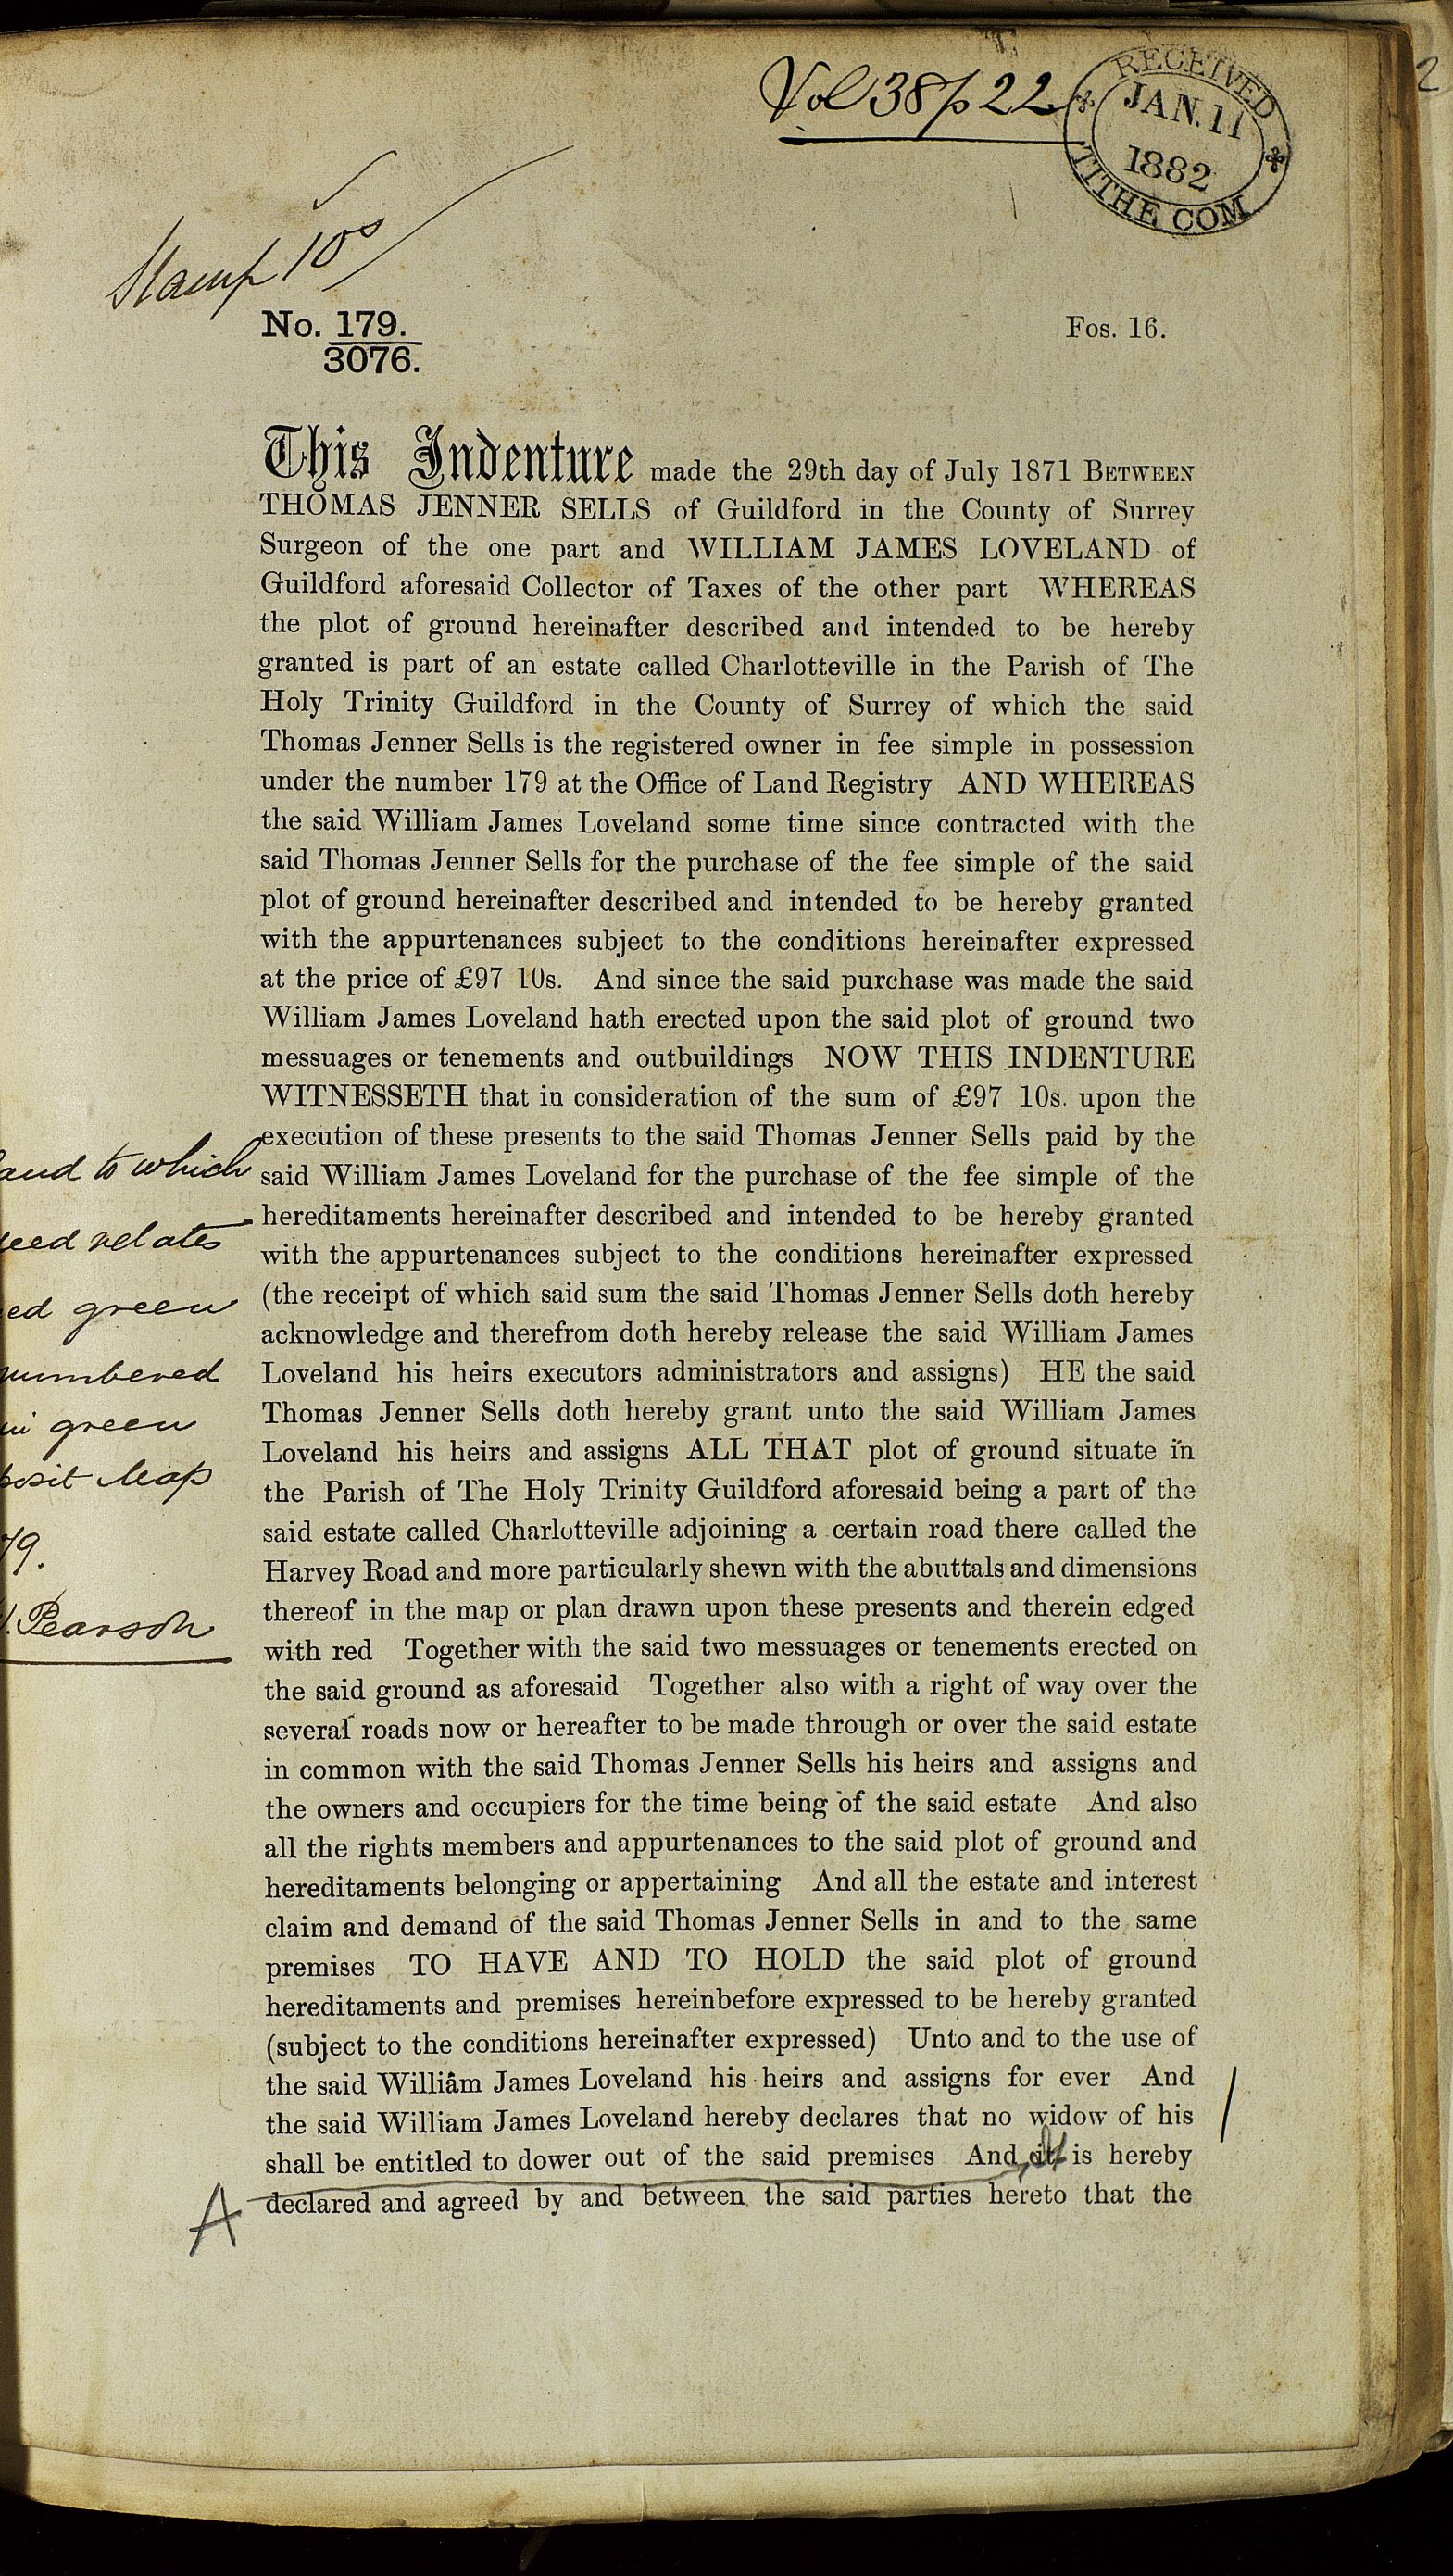 Vol 38 p 22
RECEIVED
JAN. 11
1882
TITHE COM
2
Stamp 10s
No. 179.
3076.
Fos. 16.
This Indenture made the 29th day of July 1871 BETWEEN
THOMAS JENNER SELLS of Guildford in the County of Surrey
Surgeon of the one part and WILLIAM JAMES LOVELAND of
Guildford aforesaid Collector of Taxes of the other part WHEREAS
the plot of ground hereinafter described and intended to be hereby
granted is part of an estate called Charlotteville in the Parish of The
Holy Trinity Guildford in the County of Surrey of which the said
Thomas Jenner Sells is the registered owner in fee simple in possession
under the number 179 at the Office of Land Registry AND WHEREAS
the said William James Loveland some time since contracted with the
said Thomas Jenner Sells for the purchase of the fee simple of the said
plot of ground hereinafter described and intended to be hereby granted
with the appurtenances subject to the conditions hereinafter expressed
at the price of £97 10s. And since the said purchase was made the said
William James Loveland hath erected upon the said plot of ground two
messuages or tenements and outbuildings NOW THIS INDENTURE
WITNESSETH that in consideration of the sum of £97 10s. upon the
execution of these presents to the said Thomas Jenner Sells paid by the
said William James Loveland for the purchase of the fee simple of the
hereditaments hereinafter described and intended to be hereby granted
with the appurtenances subject to the conditions hereinafter expressed
(the receipt of which said sum the said Thomas Jenner Sells doth hereby
acknowledge and therefrom doth hereby release the said William James
Loveland his heirs executors administrators and assigns) HE the said
Thomas Jenner Sells doth hereby grant unto the said William James
Loveland his heirs and assigns ALL THAT plot of ground situate in
the Parish of The Holy Trinity Guildford aforesaid being a part of the
said estate called Charlotteville adjoining a certain road there called the
Harvey Road and more particularly shewn with the abuttals and dimensions
thereof in the map or plan drawn upon these presents and therein edged
with red Together with the said two messuages or tenements erected on
the said ground as aforesaid Together also with a right of way over the
several roads now or hereafter to be made through or over the said estate
in common with the said Thomas Jenner Sells his heirs and assigns and
the owners and occupiers for the time being of the said estate And also
all the rights members and appurtenances to the said plot of ground and
hereditaments belonging or appertaining And all the estate and interest
claim and demand of the said Thomas Jenner Sells in and to the same
premises TO HAVE AND TO HOLD the said plot of ground
hereditaments and premises hereinbefore expressed to be hereby granted
(subject to the conditions hereinafter expressed) Unto and to the use of
the said William James Loveland his heirs and assigns for ever And
the said William James Loveland hereby declares that no widow of his
shall be entitled to dower out of the said premises And it is hereby
declared and agreed by and between the said parties hereto that the
A
and to which
eed relates
ed green
numbered
in green
posit Map
79.
Pearson